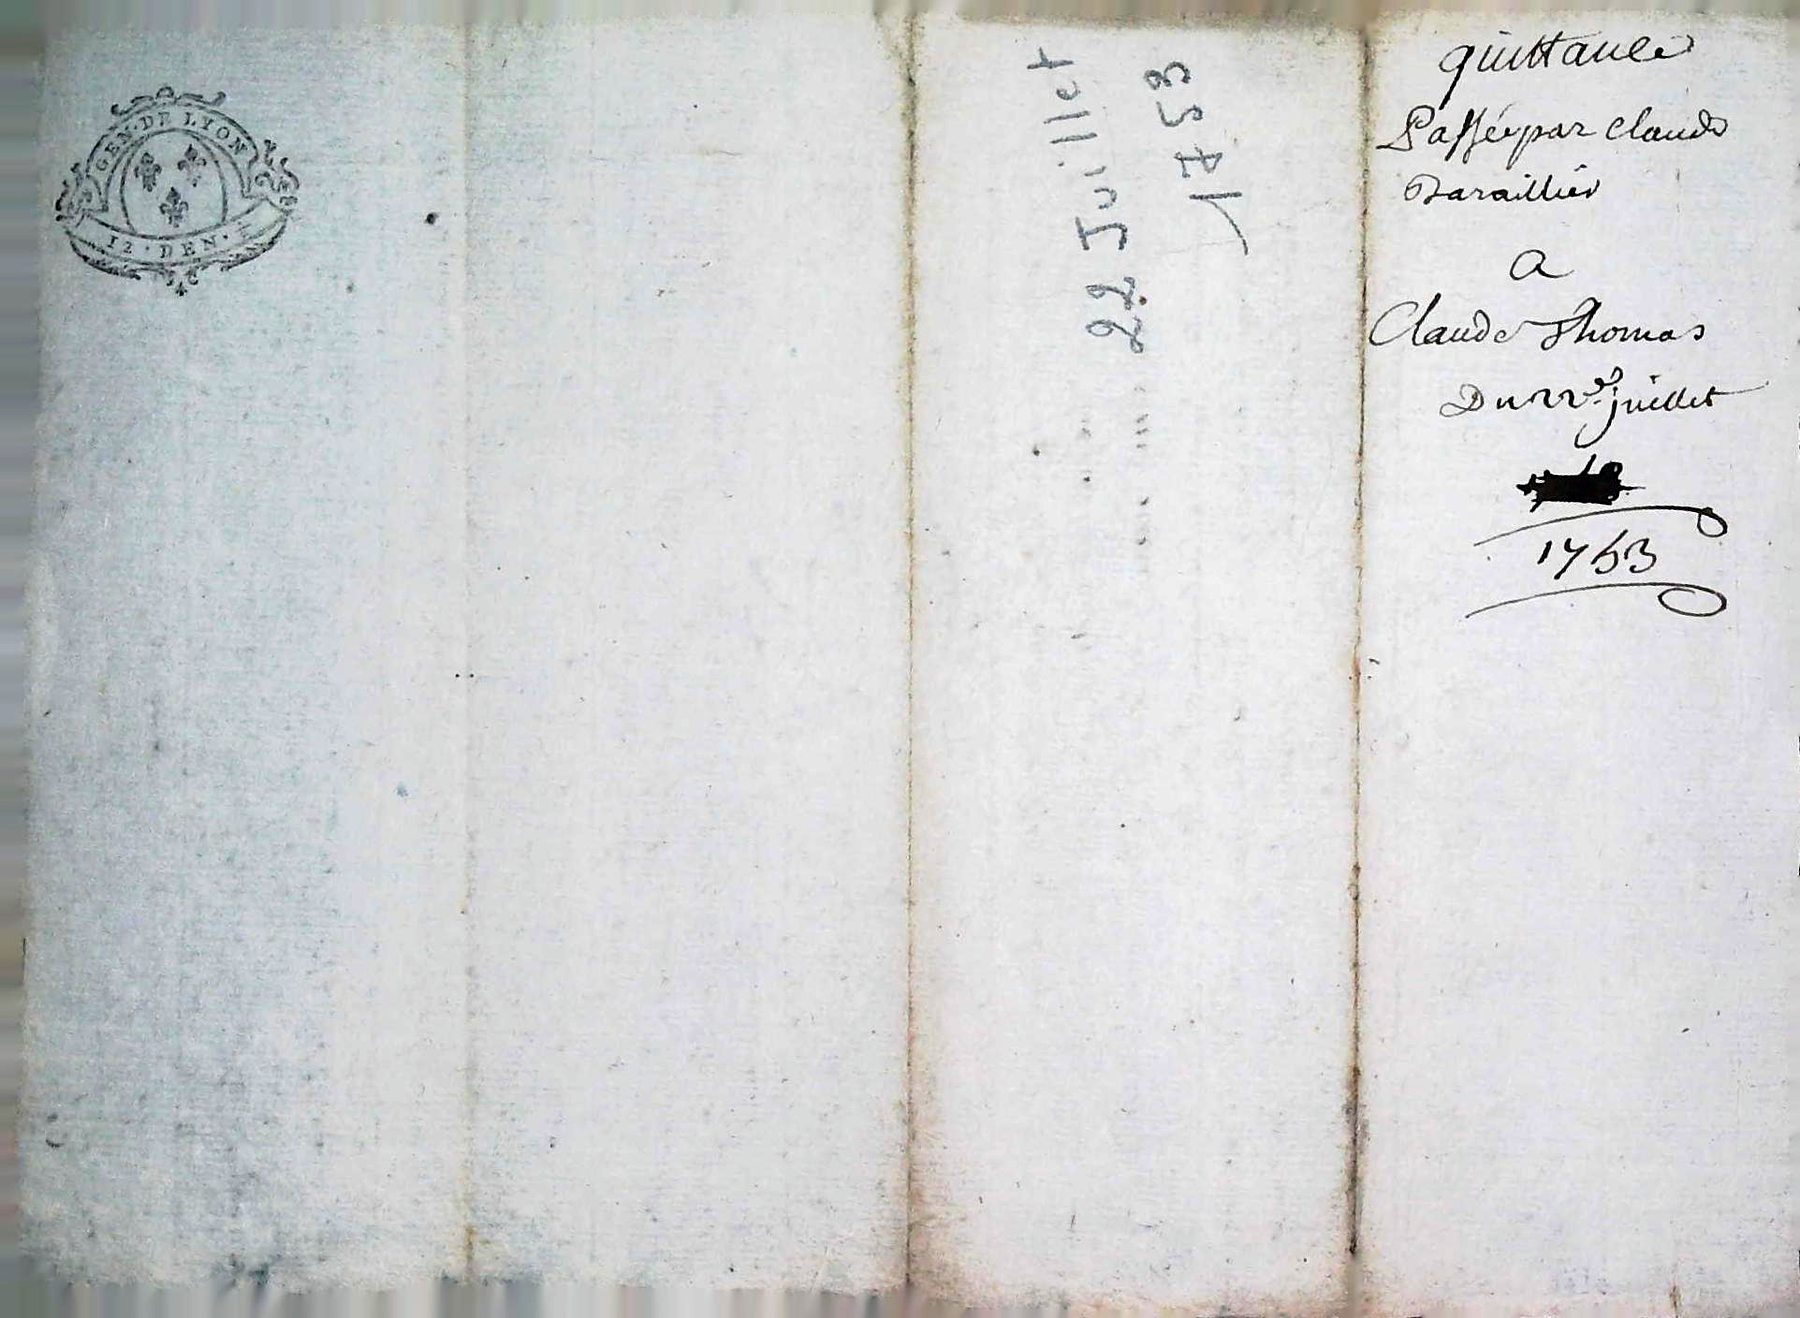 GEN·DE LYON
12·DEN·
22 Juillet
1753
quittance
Passée par claude
Baraillier
A
Claude Thomas
Du 22e. juillet
1753